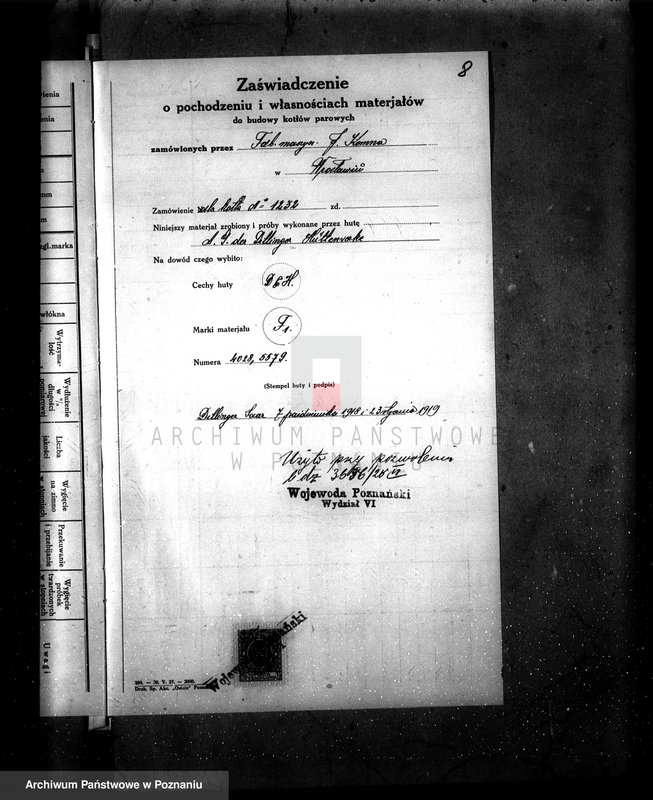 8
Zaświadczenie
o pochodzeniu i własnościach materjałów
do budowy kotłów parowych
zamówionych przez Fab. maszyn. J. Kemna
w Wrocławiu
Zamówienie dla kotła No 1232 zd.
Niniejszy materjał zrobiony i próby wykonane przez hutę
A. G. der Dillinger Hüttenwerke
Na dowód czego wybito:
Cechy huty D H.
Marki materjału F1.
Numera 4028, 5879.
(Stempel huty i podpis)
Dillingen Saar 7 października 1918 i 23 stycznia 1919
ARCHIWUM PAŃSTWOWE
W POZNANIU
Użyto przy pozwoleniu
L dz 3686/28 VI
Wojewoda Poznański
Wydział VI
Wojewoda Poznański
289. — 30. V. 27. — 2000.
Druk. Sp. Akc. „Ostoja" Poznań
ienia
enia
m
mm
m
zgl. marka
włókna
Wytrzyma-
łość
Wydłużenie
w %
długości
pomiarowej
Liczba
jakości
Wygięcie
na zimno
w stopniach
Przekuwanie
i przebijanie
Wygięcie
próbek
twardzonych
w stopniach
Uwagi
Archiwum Państwowe w Poznaniu